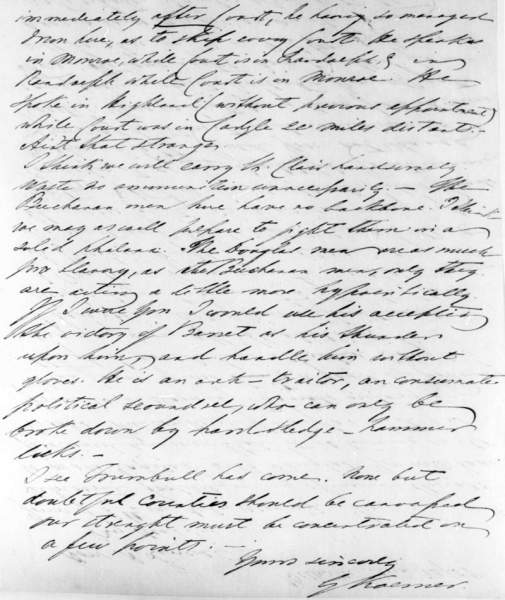 immediately after Court, he having so managed
down here, as to skip every Court. He speaks
in Monroe, while Court is in Randolph & in
Randolph while Court is in Monroe. He
spoke in Highland (without previous appointment)
while Court was in Carlyle 20 miles distant.
Aint that strange.
I think we will carry St. Clair handsomely
Waste no ammunition unnecessarily. — The
Buchanan men here have no backbone. I think
we may as well prepare to fight them in a
solid phalanx. The Douglas men are as much
pro slavery, as the Buchanan men, only they
are acting a little more hypocritically
If I were you I would use his accepting
the victory of Barret as his thunder
upon him, and handle him without
gloves. He is an arch-traitor, an consumate
political scoundrel, who can only be
broke down by hard sledge-hammer
licks. —
I see Trumbull has come. None but
doubtful counties should be canvassed
our strenght must be concentrated on
a few points. —
Yours sincerely
G Koerner.